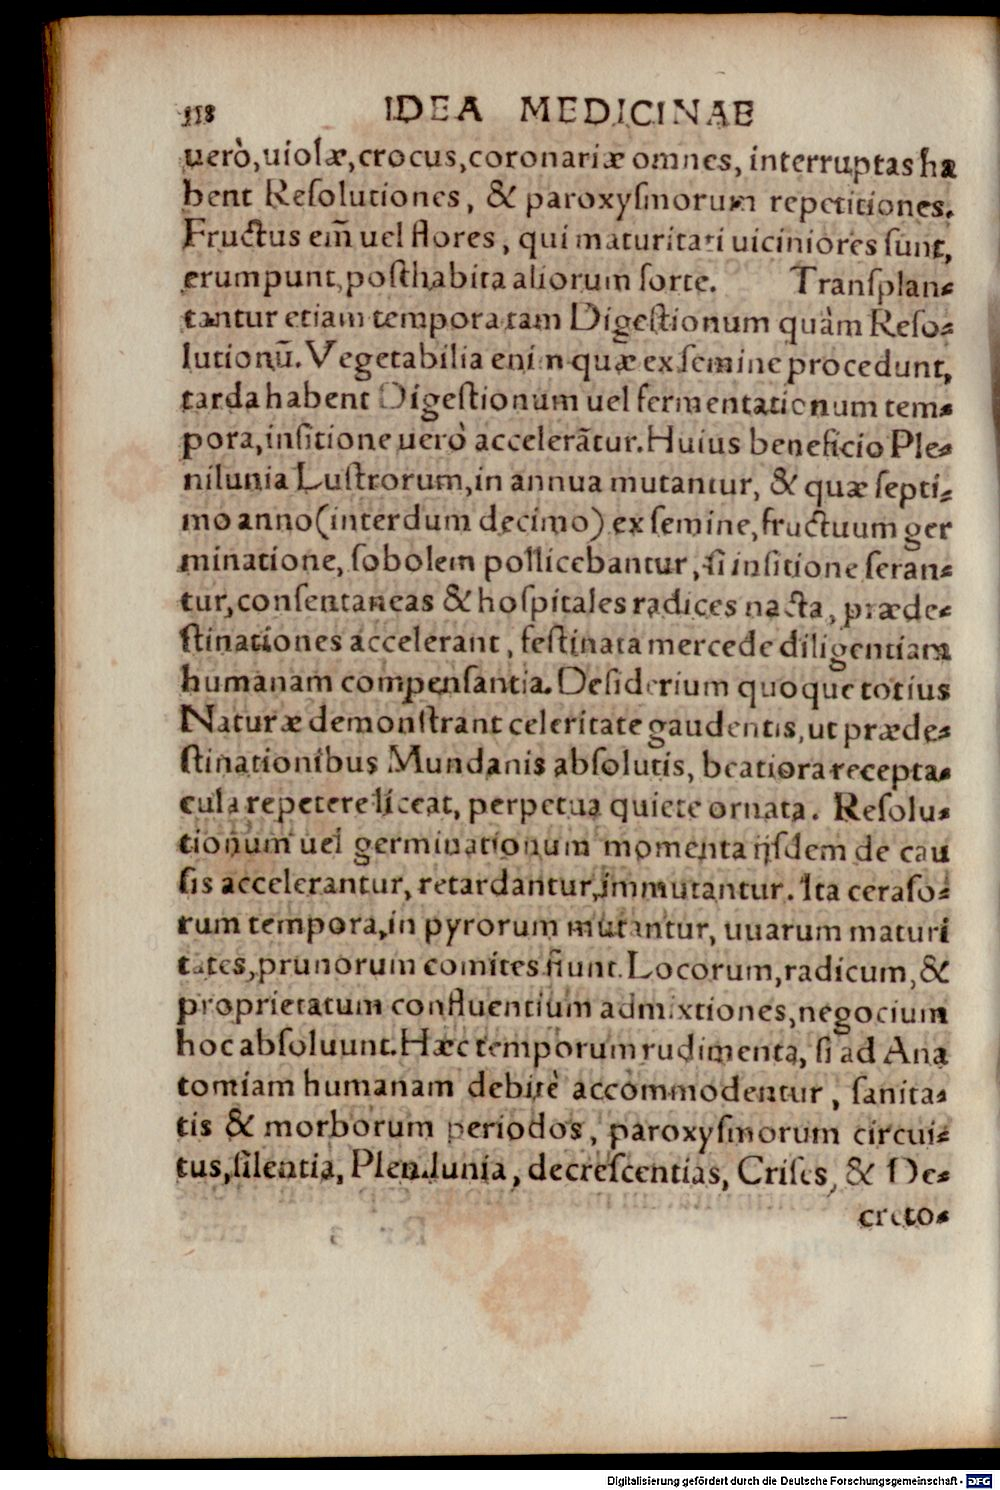 118 IDEA MEDICINAE
uerò, uiolæ, crocus, coronariæ omnes, interruptas ha
bent Reſolutiones, & paroxyſmorum repetitiones.
Fructus em̄ uel flores, qui maturitati uiciniores ſunt,
erumpunt, poſthabita aliorum ſorte. Tranſplan⸗
tantur etiam tempora tam Digeſtionum quàm Reſo⸗
lutionũ. Vegetabilia enim quæ ex ſemine procedunt,
tarda habent Digeſtionum uel fermentationum tem⸗
pora, inſitione uerò accelerãtur. Huius beneficio Ple⸗
nilunia Luſtrorum, in annua mutantur, & quæ ſepti⸗
mo anno (interdum decimo) ex ſemine, fructuum ger
minatione, ſobolem pollicebantur, ſi inſitione ſeran⸗
tur, conſentaneas & hoſpitales radices nacta, præde⸗
ſtinationes accelerant, feſtinata mercede diligentiam
humanam compenſantia. Deſiderium quoque totius
Naturæ demonſtrant celeritate gaudentis, ut præde⸗
ſtinationibus Mundanis abſolutis, beatiora recepta⸗
cula repetere liceat, perpetua quiete ornata. Reſolu⸗
tionum uel germinationum momenta ijſdem de cau
ſis accelerantur, retardantur, immutantur. Ita ceraſo⸗
rum tempora, in pyrorum mutantur, uuarum maturi
tates, prunorum comites fiunt. Locorum, radicum, &
proprietatum confluentium admixtiones, negocium
hoc abſoluunt. Hæc temporum rudimenta, ſi ad Ana
tomiam humanam debitè accommodentur, ſanita⸗
tis & morborum periodos, paroxyſmorum circui⸗
tus, ſilentia, Plenilunia, decreſcentias, Criſes, & De⸗
creto⸗
Digitalisierung gefördert durch die Deutsche Forschungsgemeinschaft - DFG